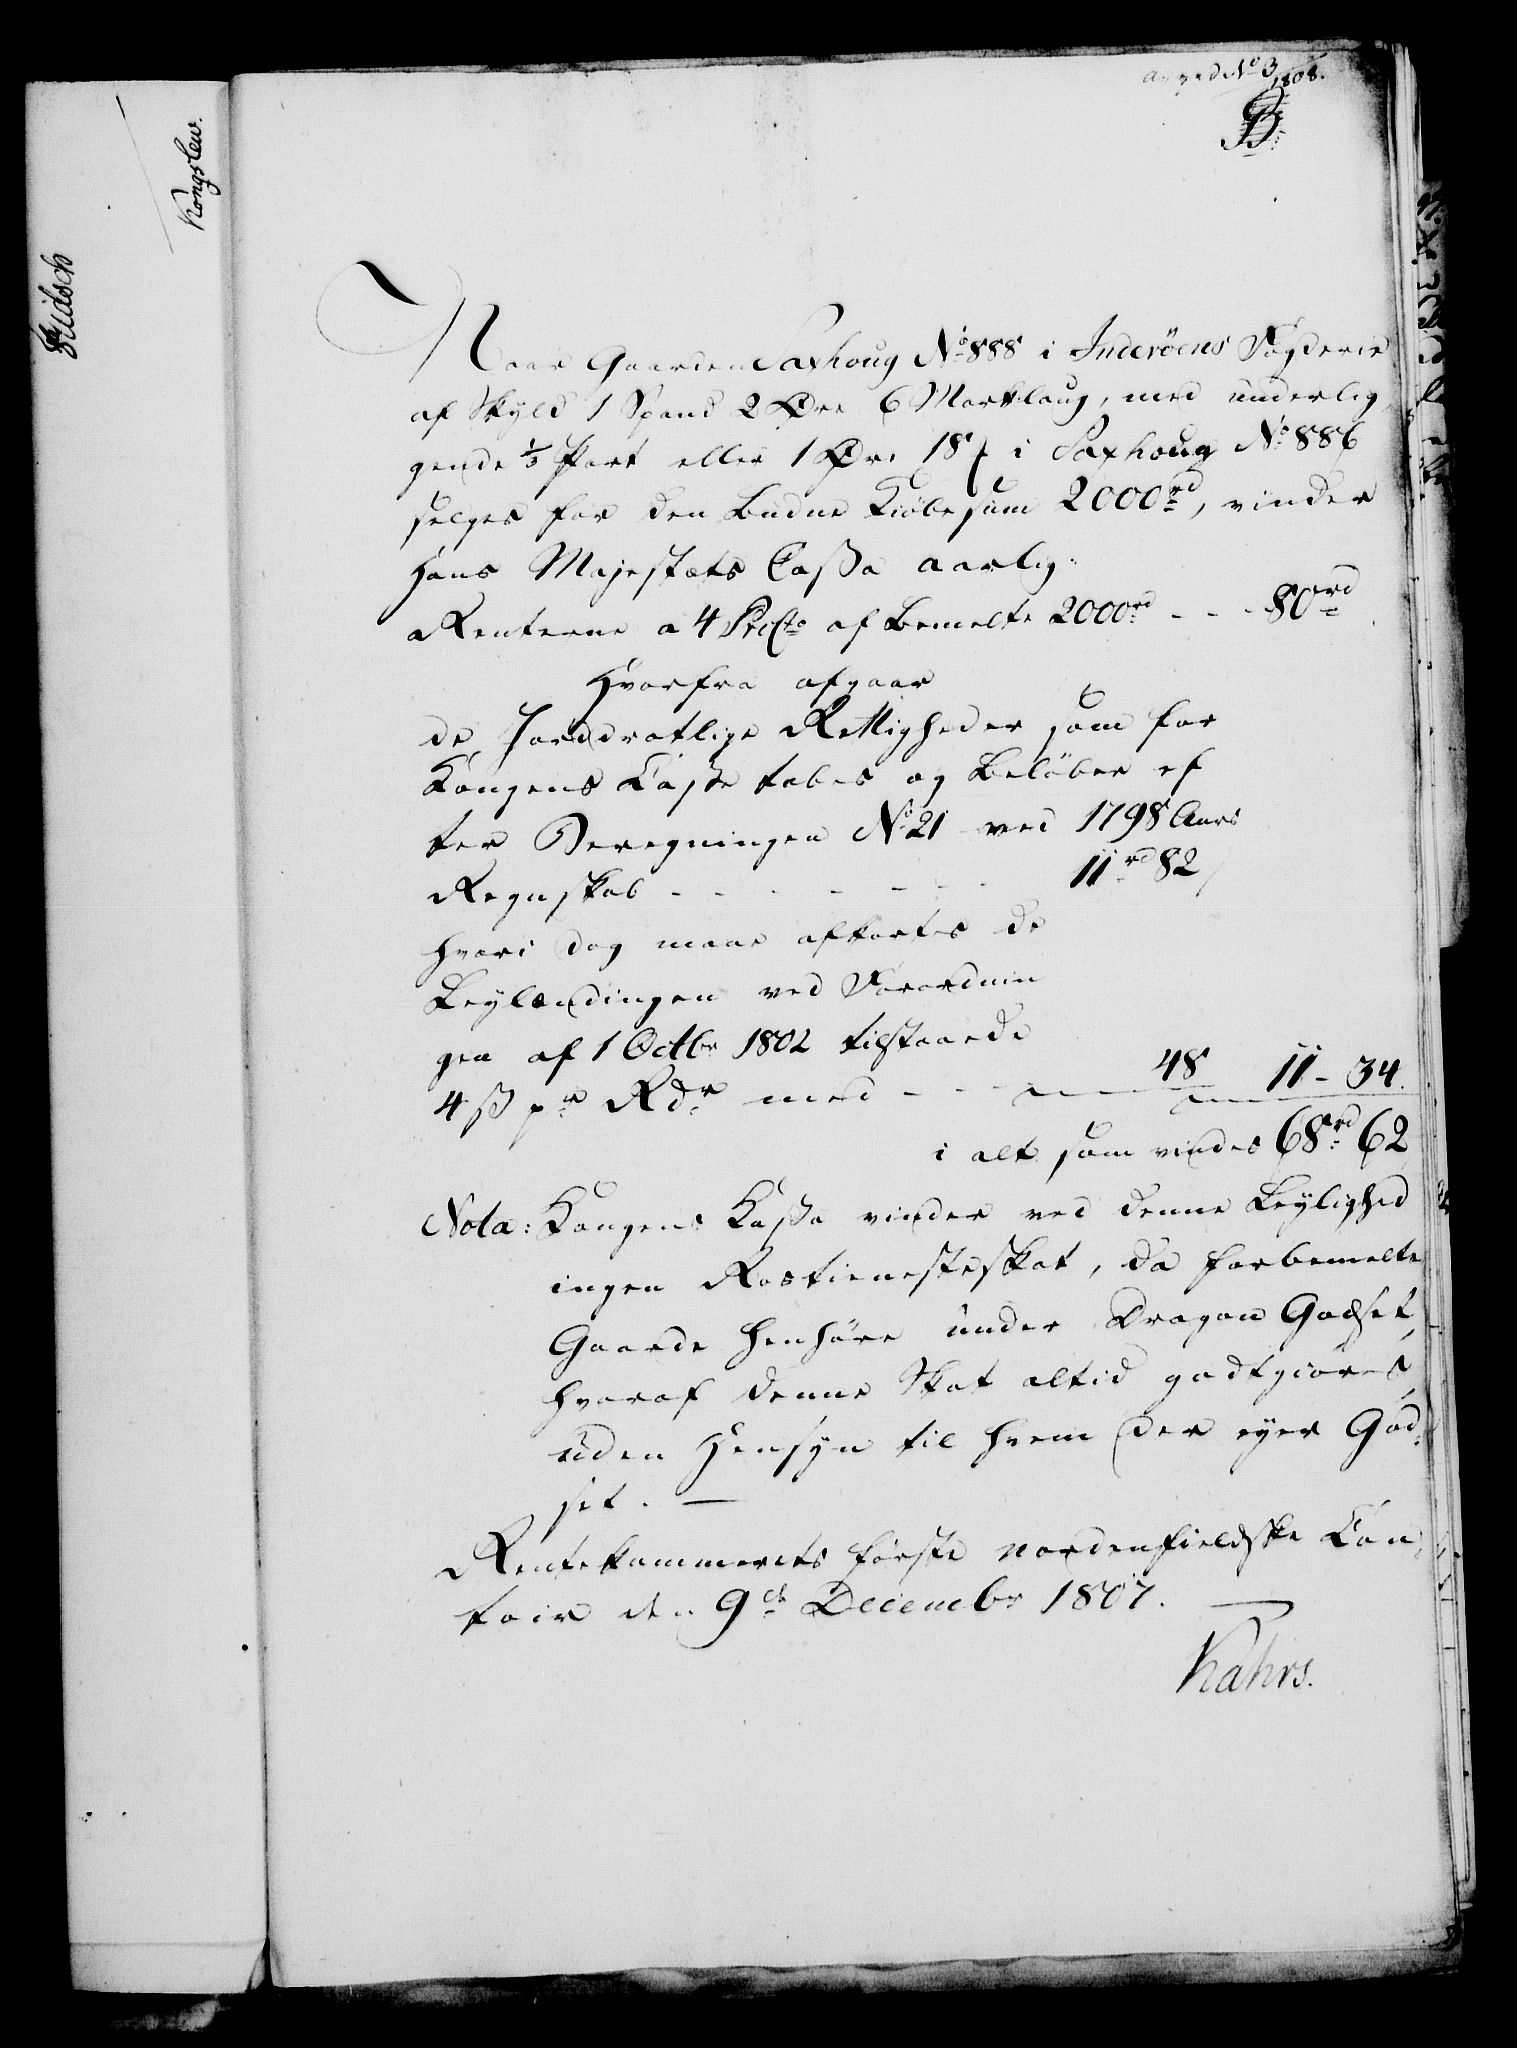 No 3 1808.
B.
Kongslew.
Naar Gaarden Saxhoug No 888 i Inderöens Fogderie
af Skyld 1 Spand 2 Øre 6 Marklaug, med underlig
gende 1/3 Part eller 1 Øre 18 i Saxhoug No 886
selges for den budne Kiøbesum 2000rd, vinder
Hans Majestæts Cassa aarlig:
Renterne a 4 PrCto af bemelte 2000rd - - - 80rd
Hvorfra afgaar
de Jorddrotlige Rettigheder som for
Kongens Casse tabes og beløber ef
ter Beregningen No 21 ved 1798 Aars
Regnskab - - - - - - 11rd 82
hvori dog maae afkortes de
Beylændingen ved Forordnin
gen af 1 Octbr 1802 tilstaaede
4 ß pr Rdr med - - - 48 11 - 34.
i alt som vindes 68rd 62
Nota: Kongens Kassa vinder ved denne Leylighed
ingen Rostienesteskat, da forbemelte
Gaarde henhøre under Dragon Godset,
hvoraf denne Skat altid godtgiøres,
uden Hensyn til hvem der eyer God-
set. —
Rentekammerets første nordenfieldske Con-
toir den 9de Decembr 1807. —
Kahrs.